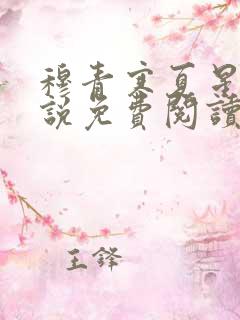 穆青寒夏星
說免費閱讀
王鋒